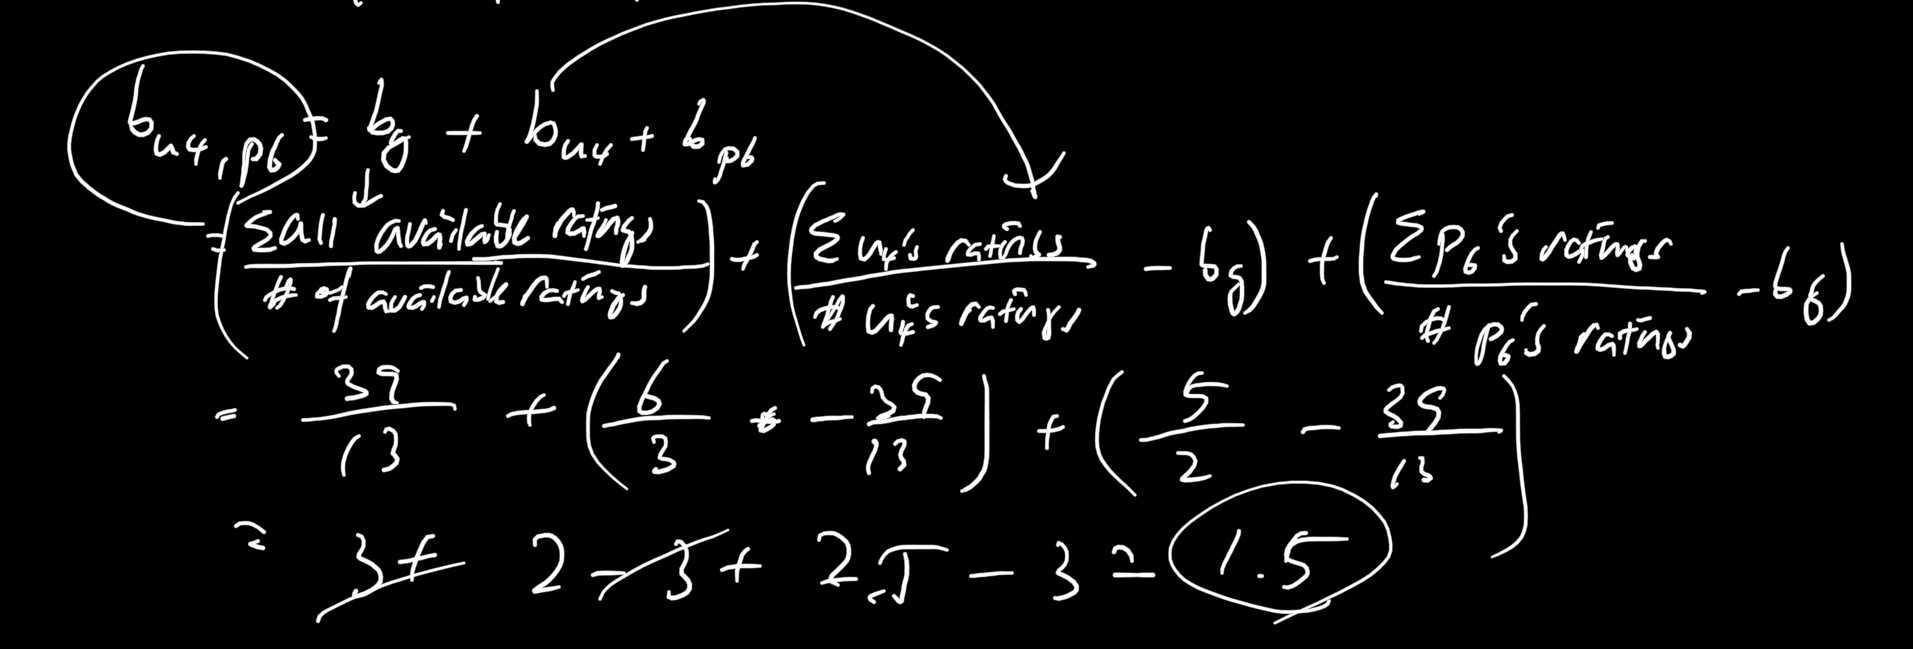 b_{u4,p6} = b_g + b_{u4} + b_{p6}
= (Σ All available ratings / # of available ratings) + (Σ u_4's ratings / # u_4's ratings - b_g) + (Σ P_6's ratings / # P_6's ratings - b_g)
= 39/13 + (6/3 - 39/13) + (5/2 - 39/13)
= 3 + 2 - 3 + 2.5 - 3 = 1.5